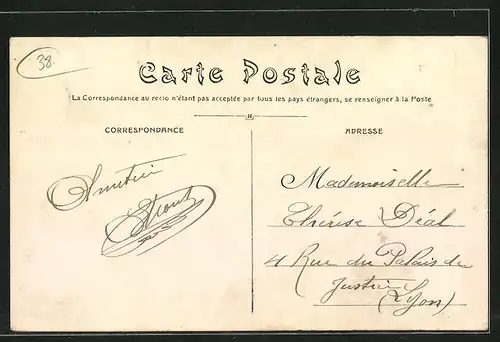 38.
Carte Postale
La Correspondance au recto n'étant pas acceptée par tous les pays étrangers, se renseigner à la Poste
CORRESPONDANCE
ADRESSE
Mademoiselle
Thérèse Déal
4 Rue du Palais de
Justice
(Lyon)